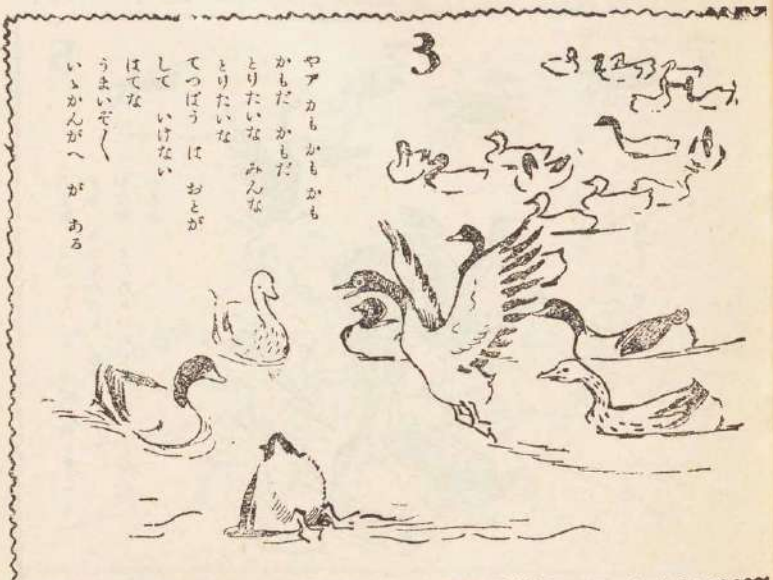 3
やア かも かも かも
かもだ かもだ
とりたいな みんな
とりたいな
てつぱう は おとが
して いけない
はてな
うまいぞ〳〵
いゝかんがへ が ある